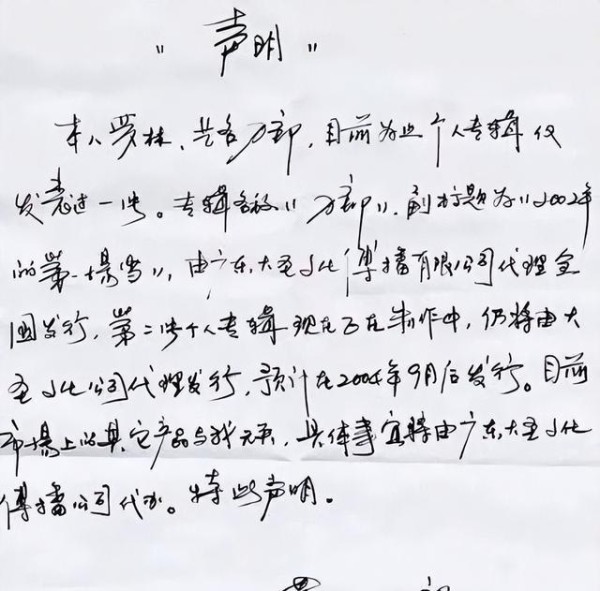 "声明"
本人罗林、艺名刀郎,目前为止个人专辑仅
发表过一张。专辑名称"刀郎",副标题为"2002年
的第一场雪",由广东大圣文化传播有限公司代理全
国发行,第二张个人专辑现在正在制作中,仍将由大
圣文化公司代理发行,预计在2004年9月后发行。目前
市场上的其它产品与我无关,具体事宜将由广东大圣文化
传播公司代办。特此声明。